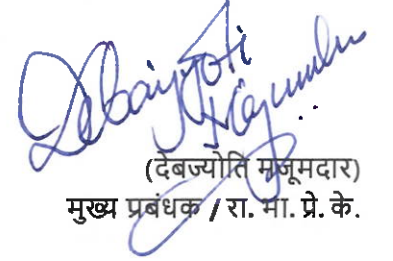 Debajyoti
Majumdar
(देबज्योति मजूमदार)
मुख्य प्रबंधक / रा. भा. प्रे. के.